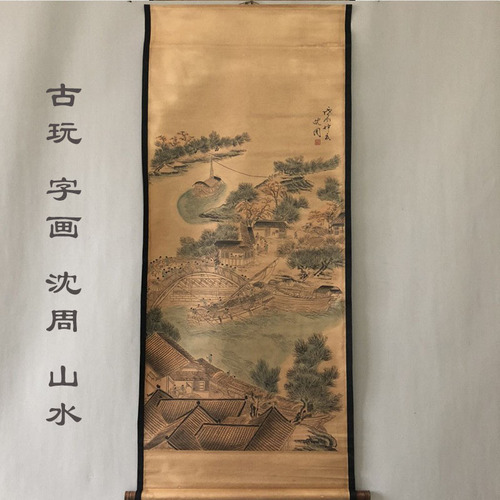 古玩 字画 沈周 山水
沈周